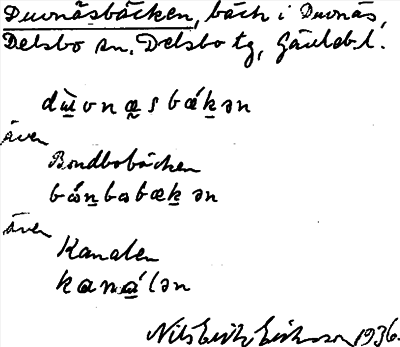 Duvnäsbäcken, bäck i Duvnäs,
Delsbo sn, Delsbo tg, Gävleb. l.
dùvnæsbækən
även
Bondbobäcken
bónbobækən
även
Kanalen
kaná lən
Nils Erik Eriksson 1936.